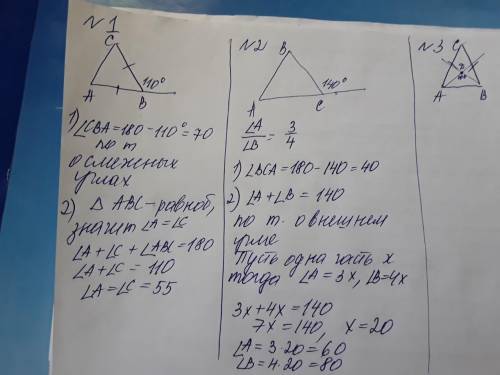 №1
C
110°
A
B
1) ∠CBA=180-110°=70
по т.
о смежных
углах
2) △ ABC-равноб,
значит ∠A=∠C
∠A+∠C+∠ABC=180
∠A+∠C=110
∠A=∠C=55
№2
B
140°
A
C
∠A/∠B = 3/4
1) ∠BCA=180-140=40
2) ∠A+∠B=140
по т. о внешнем
угле
Пусть одна часть x
тогда ∠A=3x, ∠B=4x
3x+4x=140
7x=140, x=20
∠A=3·20=60
∠B=4·20=80
№3
C
A
B